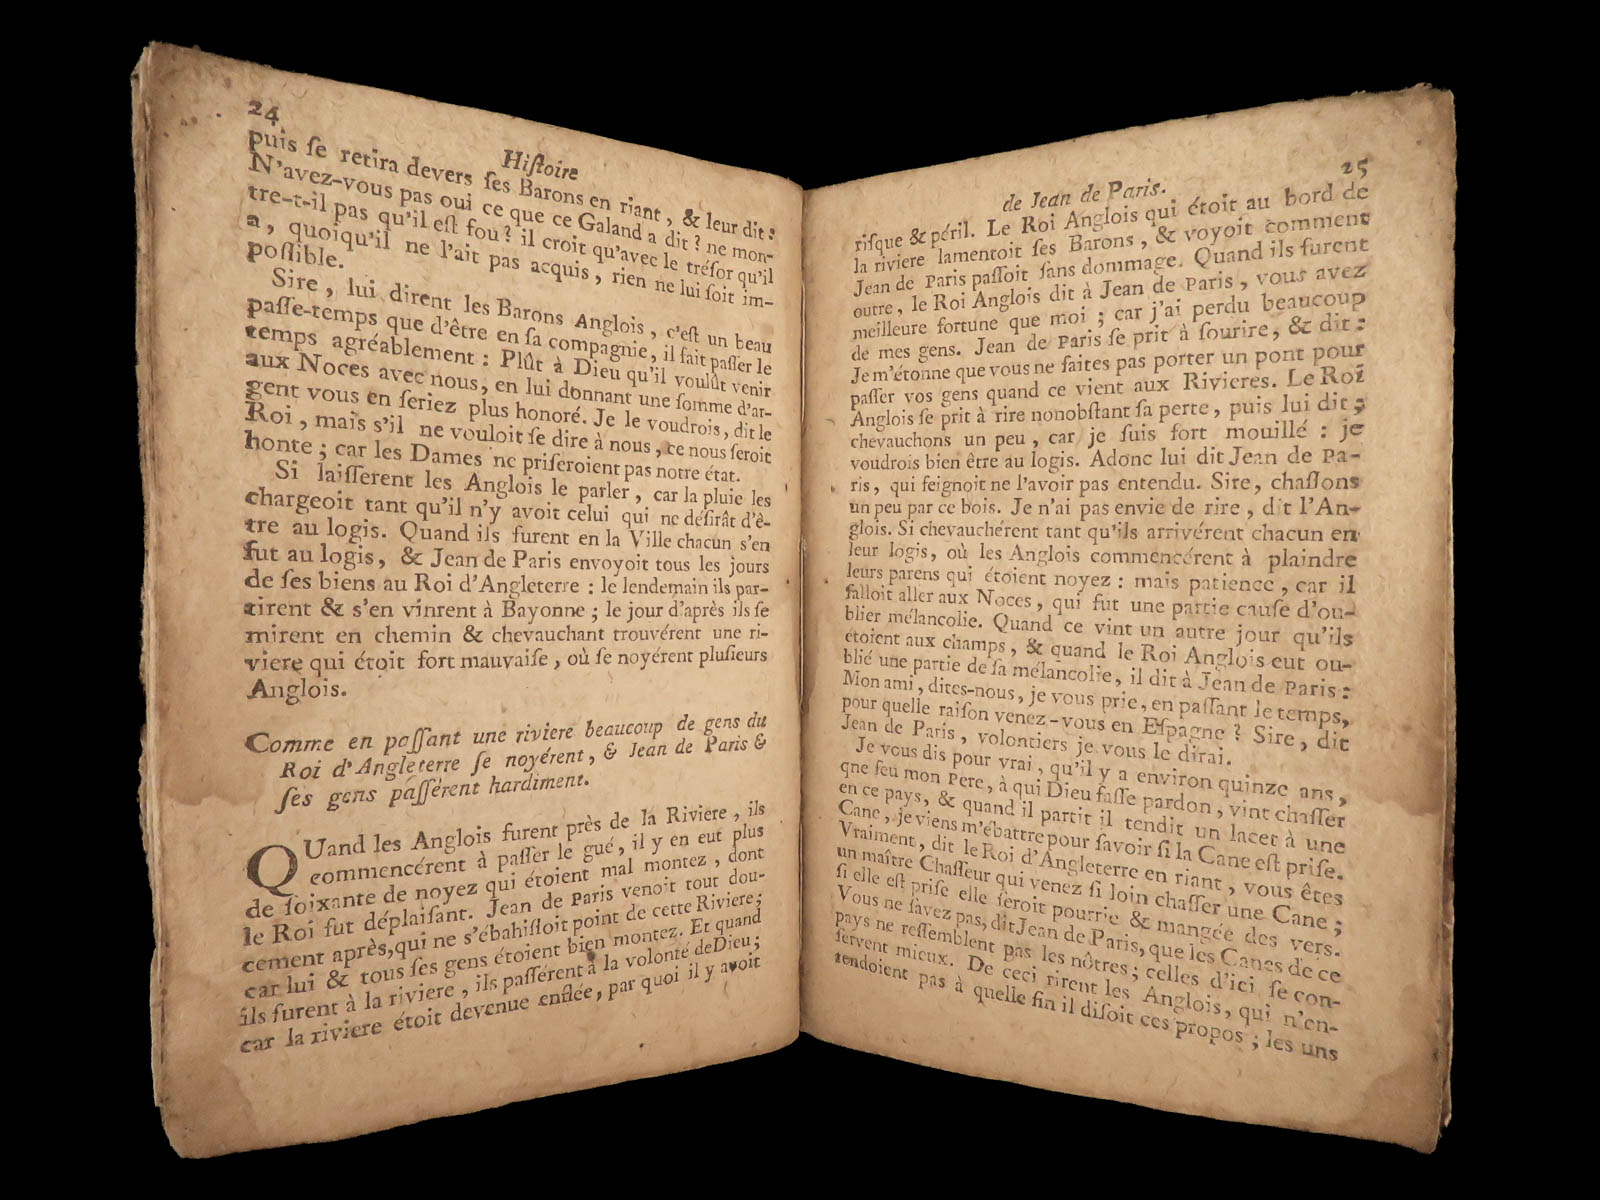 24
Hiſtoire
puis ſe retira devers ſes Barons en riant, & leur dit:
N'avez-vous pas oui ce que ce Galand a dit? ne mon-
tre-t-il pas qu'il eſt fou? il croit qu'avec le tréſor qu'il
a, quoiqu'il ne l'ait pas acquis, rien ne lui ſoit im-
poſſible.
Sire, lui dirent les Barons Anglois, c'eſt un beau
paſſe-temps que d'être en ſa compagnie, il fait paſſer le
temps agréablement: Plût à Dieu qu'il voulût venir
aux Noces avec nous, en lui donnant une ſomme d'ar-
gent vous en ſeriez plus honoré. Je le voudrois, dit le
Roi, mais s'il ne vouloit ſe dire à nous, ce nous ſeroit
honte; car les Dames ne priſeroient pas notre état.
Si laiſſerent les Anglois le parler, car la pluie les
chargeoit tant qu'il n'y avoit celui qui ne déſirât d'ê-
tre au logis. Quand ils furent en la Ville chacun s'en
fut au logis, & Jean de Paris envoyoit tous les jours
de ſes biens au Roi d'Angleterre: le lendemain ils par-
tirent & s'en vinrent à Bayonne; le jour d'après ils ſe
mirent en chemin & chevauchant trouvérent une ri-
viere qui étoit fort mauvaiſe, où ſe noyérent pluſieurs
Anglois.
Comme en paſſant une riviere beaucoup de gens du
Roi d'Angleterre ſe noyérent, & Jean de Paris &
ſes gens paſſérent hardiment.
QUand les Anglois furent près de la Riviere, ils
commencérent à paſſer le gué, il y en eut plus
de ſoixante de noyez qui étoient mal montez, dont
le Roi fut déplaiſant. Jean de Paris venoit tout dou-
cement après, qui ne s'ébahiſſoit point de cette Riviere;
car lui & tous ſes gens étoient bien montez. Et quand
ils furent à la riviere, ils paſſérent à la volonté de Dieu;
car la riviere étoit devenue enflée, par quoi il y avoit
25
de Jean de Paris.
riſque & péril. Le Roi Anglois qui étoit au bord de
la riviere lamentoit ſes Barons, & voyoit comment
Jean de Paris paſſoit ſans dommage. Quand ils furent
outre, le Roi Anglois dit à Jean de Paris, vous avez
meilleure fortune que moi; car j'ai perdu beaucoup
de mes gens. Jean de Paris ſe prit à ſourire, & dit:
Je m'étonne que vous ne faites pas porter un pont pour
paſſer vos gens quand ce vient aux Rivieres. Le Roi
Anglois ſe prit à rire nonobſtant ſa perte, puis lui dit;
chevauchons un peu, car je ſuis fort mouillé: je
voudrois bien être au logis. Adonc lui dit Jean de Pa-
ris, qui feignoit ne l'avoir pas entendu. Sire, chaſſons
un peu par ce bois. Je n'ai pas envie de rire, dit l'An-
glois. Si chevauchérent tant qu'ils arrivérent chacun en
leur logis, où les Anglois commencérent à plaindre
leurs parens qui étoient noyez: mais patience, car il
falloit aller aux Noces, qui fut une partie cauſe d'ou-
blier mélancolie. Quand ce vint un autre jour qu'ils
étoient aux champs, & quand le Roi Anglois eut ou-
blié une partie de ſa mélancolie, il dit à Jean de Paris:
Mon ami, dites-nous, je vous prie, en paſſant le temps,
pour quelle raiſon venez-vous en Eſpagne? Sire, dit
Jean de Paris, volontiers je vous le dirai.
Je vous dis pour vrai, qu'il y a environ quinze ans,
que feu mon Pere, à qui Dieu faſſe pardon, vint chaſſer
en ce pays, & quand il partit il tendit un lacet à une
Cane, je viens m'ébattre pour ſavoir ſi la Cane eſt priſe.
Vraiment, dit le Roi d'Angleterre en riant, vous êtes
un maître Chaſſeur qui venez ſi loin chaſſer une Cane;
ſi elle eſt priſe elle ſeroit pourrie & mangée des vers.
Vous ne ſavez pas, dit Jean de Paris, que les Canes de ce
pays ne reſſemblent pas les nôtres; celles d'ici ſe con-
ſervent mieux. De ceci rirent les Anglois, qui n'en-
tendoient pas à quelle fin il diſoit ces propos; les uns